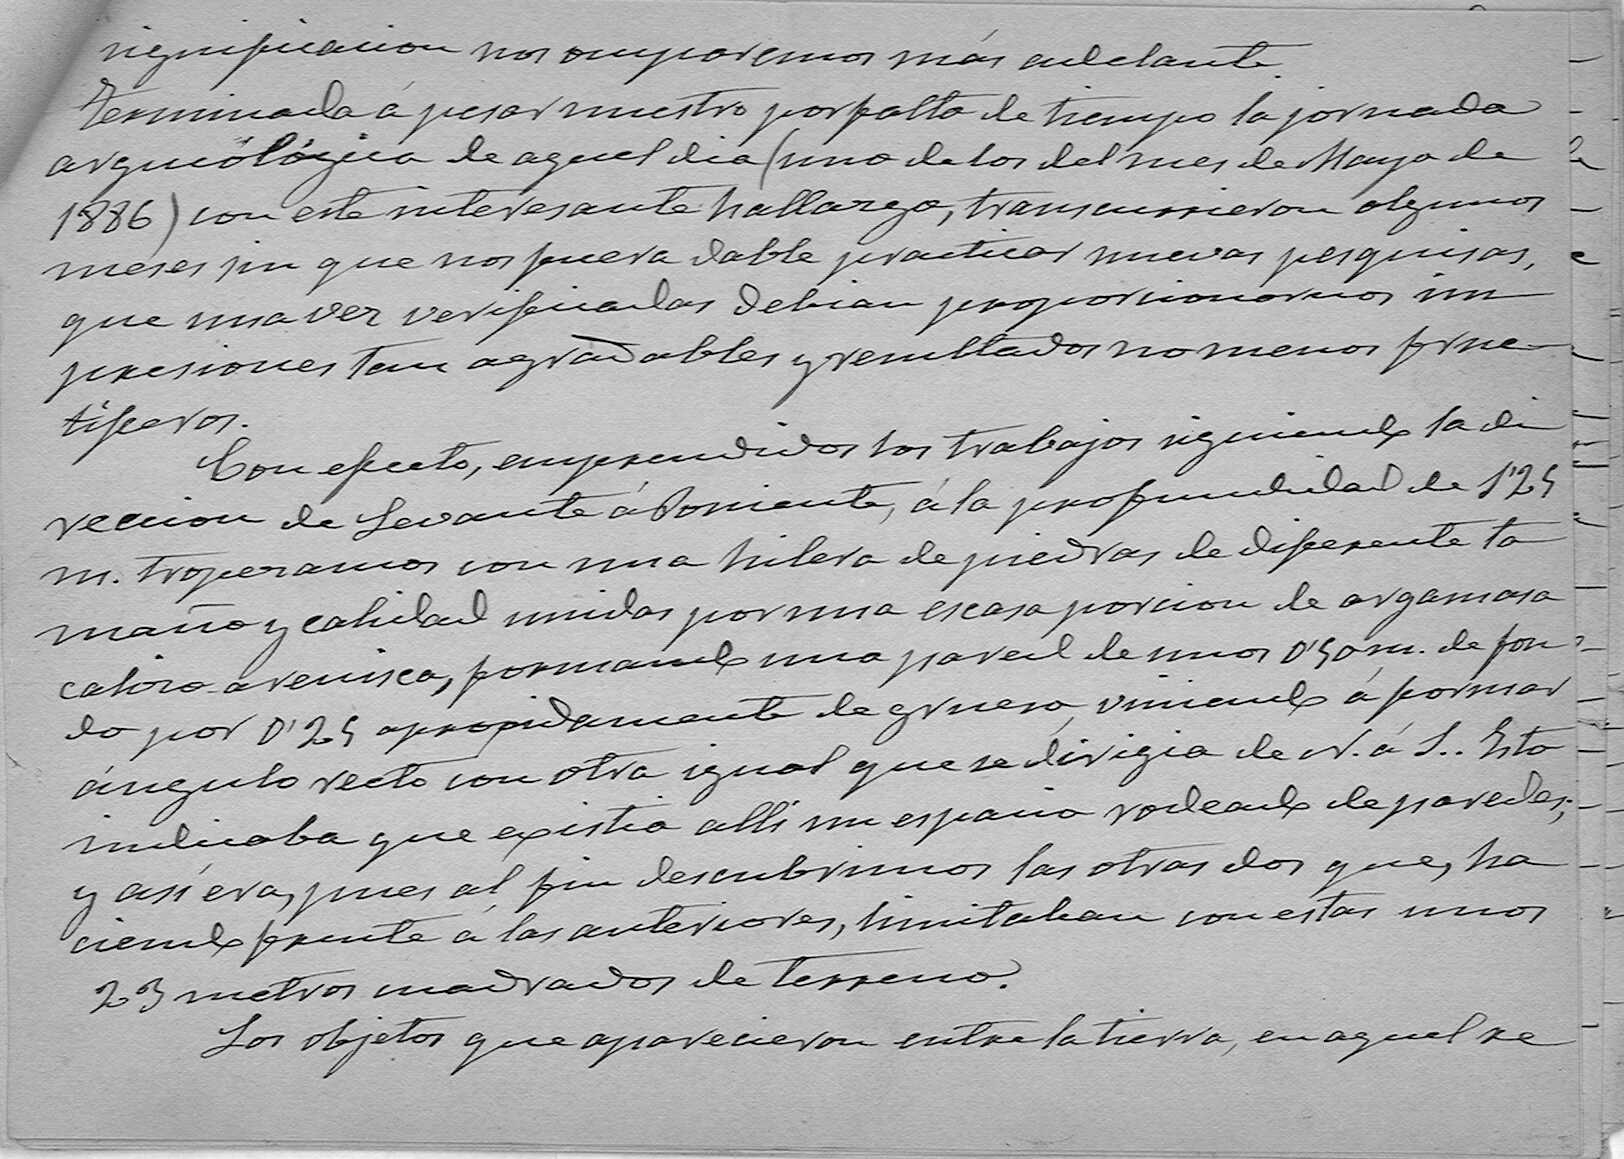 significacion nos ocuparemos más adelante.
Terminada á pesar nuestro por falta de tiempo la jornada
arqueológica de aquel dia (uno de los del mes de Mayo de
1886) con este interesante hallazgo, transcurrieron algunos
meses sin que nos fuera dable practicar nuevas pesquisas,
que una vez verificadas debian proporcionarnos im
presiones tan agradables y resultados no menos fruc-
tiferos.
Con efecto, emprendidos los trabajos siguiendo la di
reccion de Levante á Poniente, á la profundidad de 1'25
m. tropezamos con una hilera de piedras de diferente ta
maño y calidad unidas por una escasa porcion de argamasa
calizo-arenisca, formando una pared de unos 0'50 m. de fon
do por 0'25 aproxidamente de grueso, viniendo á formar
ángulo recto con otra igual que se dirigia de N. á S.. Esto
indicaba que existia alli un espacio rodeado de paredes;
y así era, pues al fin descubrimos las otras dos que, ha
ciendo frente á las anteriores, limitaban con estas unos
23 metros cuadrados de terreno.
Los objetos que aparecieron entre la tierra, en aquel re